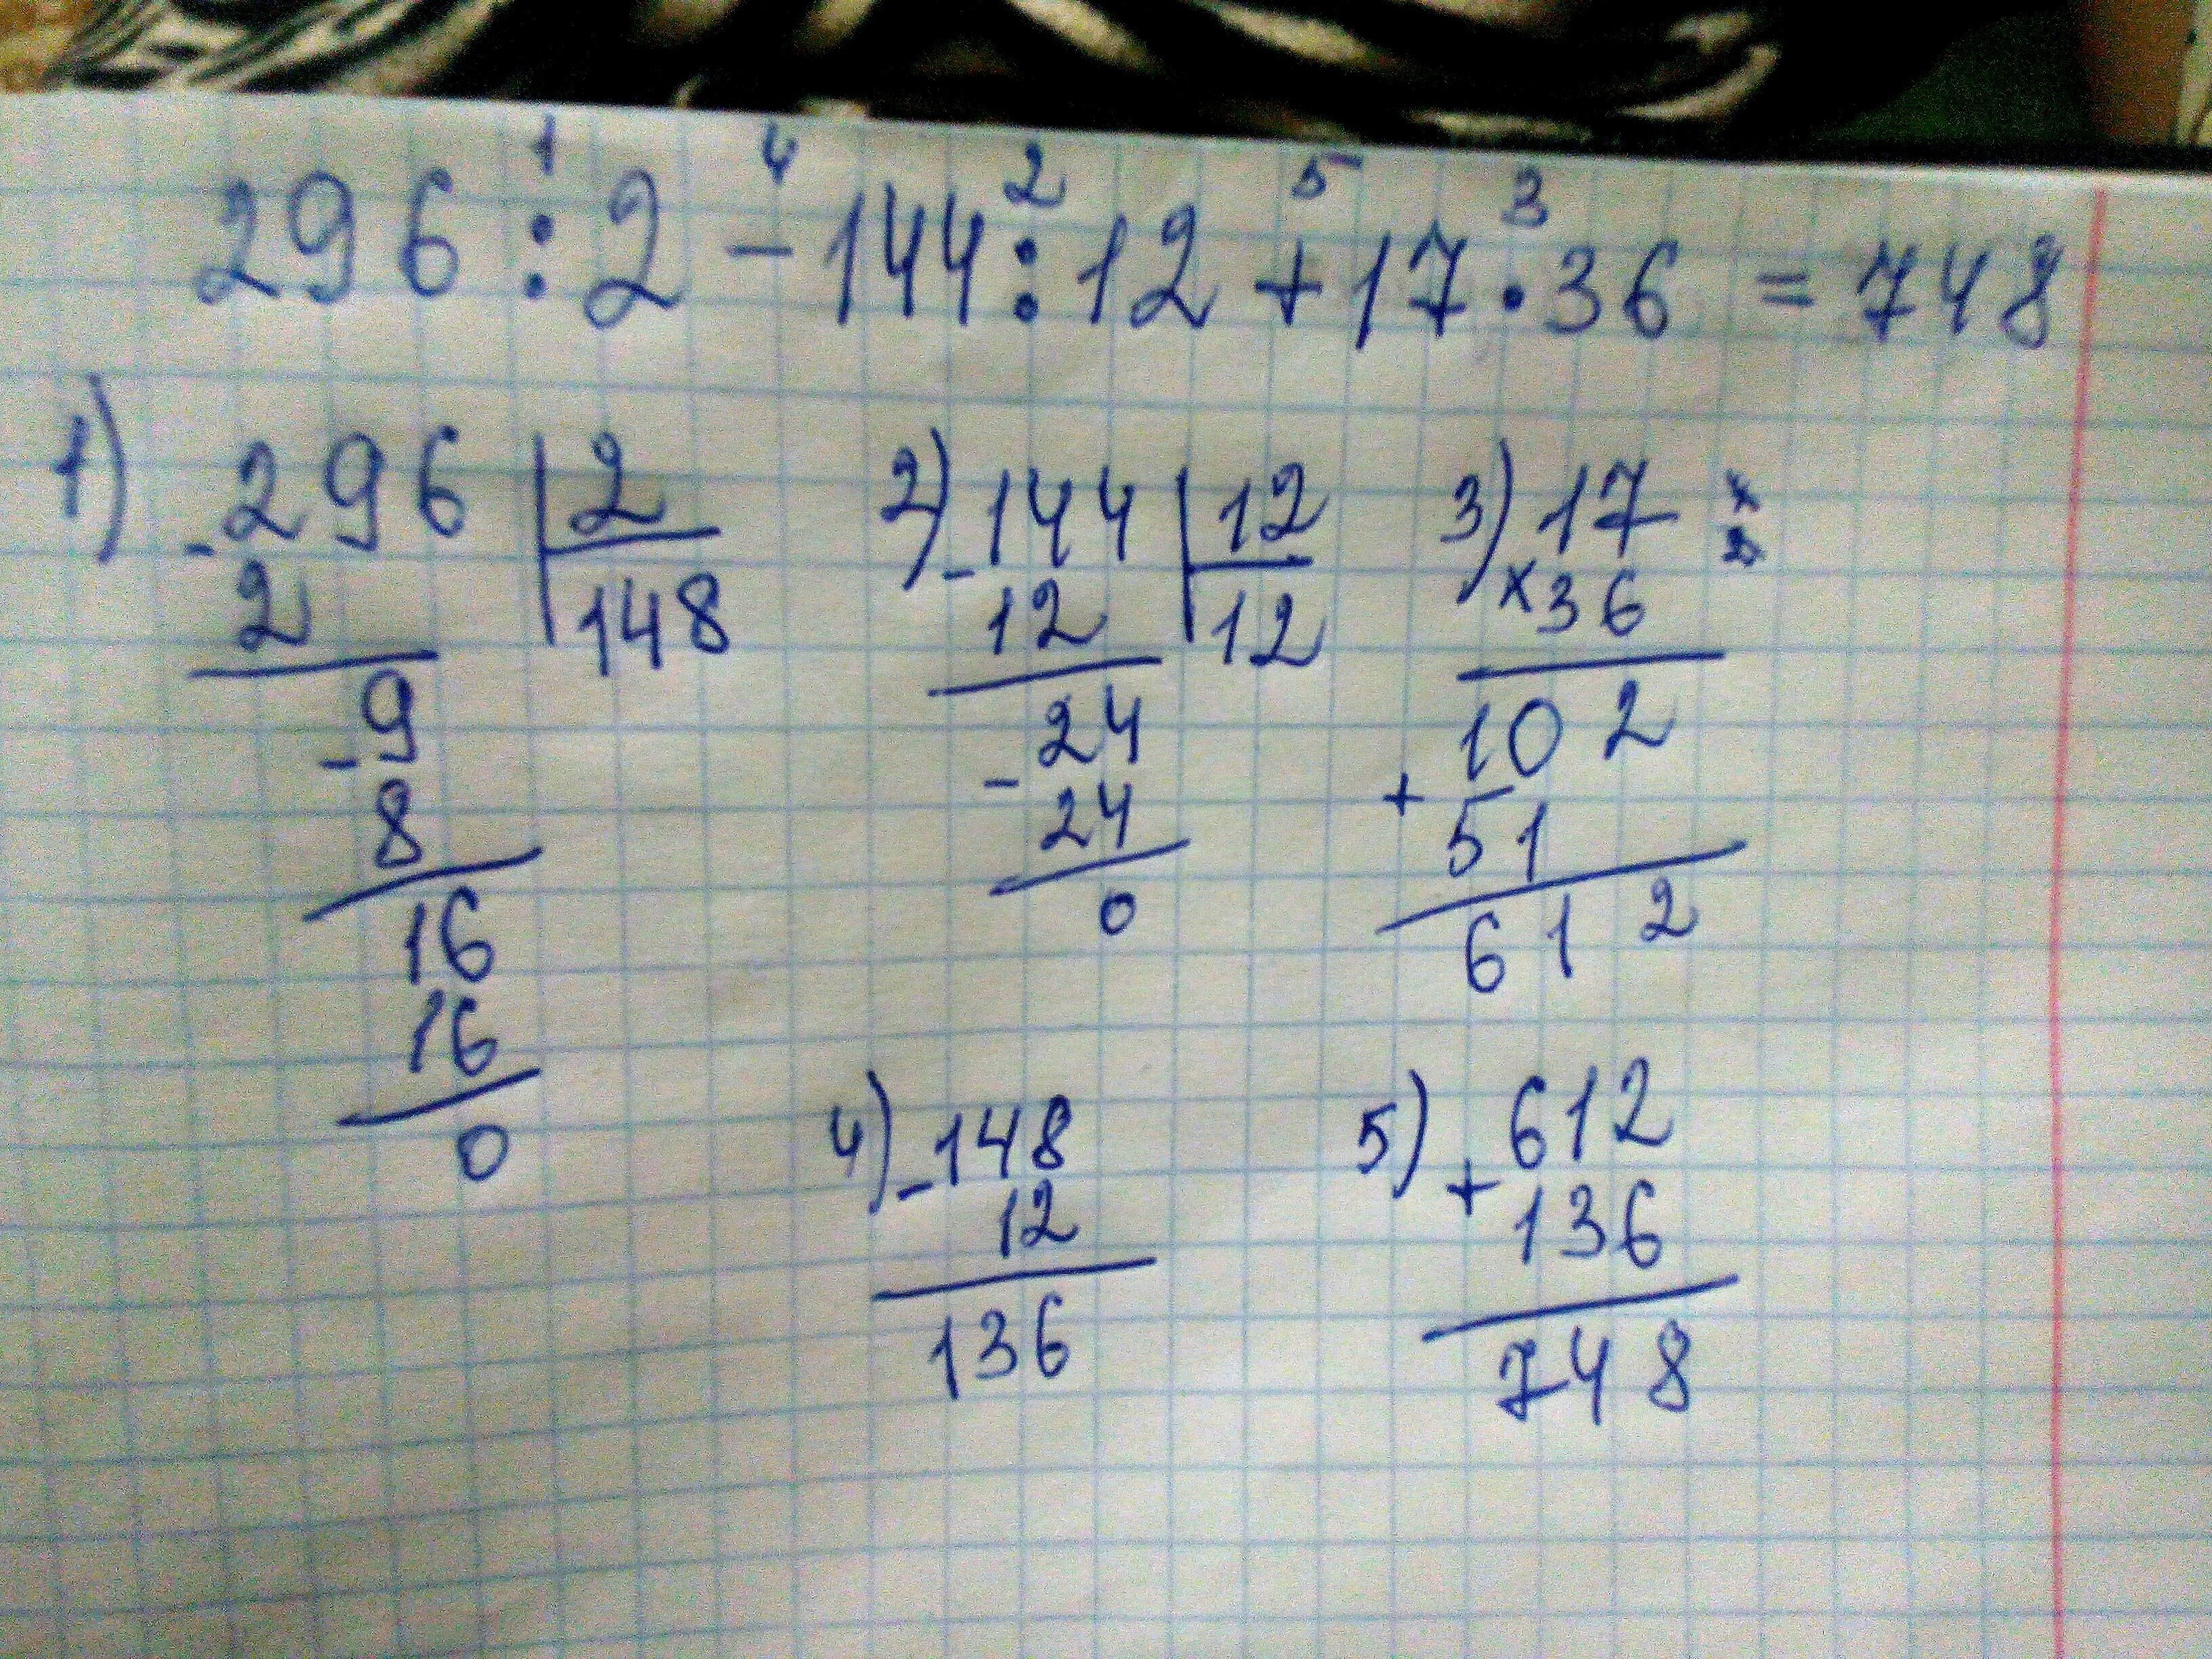 1 4 2 5 3
296 : 2 - 144 : 12 + 17 · 36 = 748
1) - 296 | 2
2 148
- 9
8
16
16
0
2) - 144 | 12
12 12
- 24
24
0
3) 17
× 36
102
+ 51
612
4) - 148
12
136
5) 612
+ 136
748